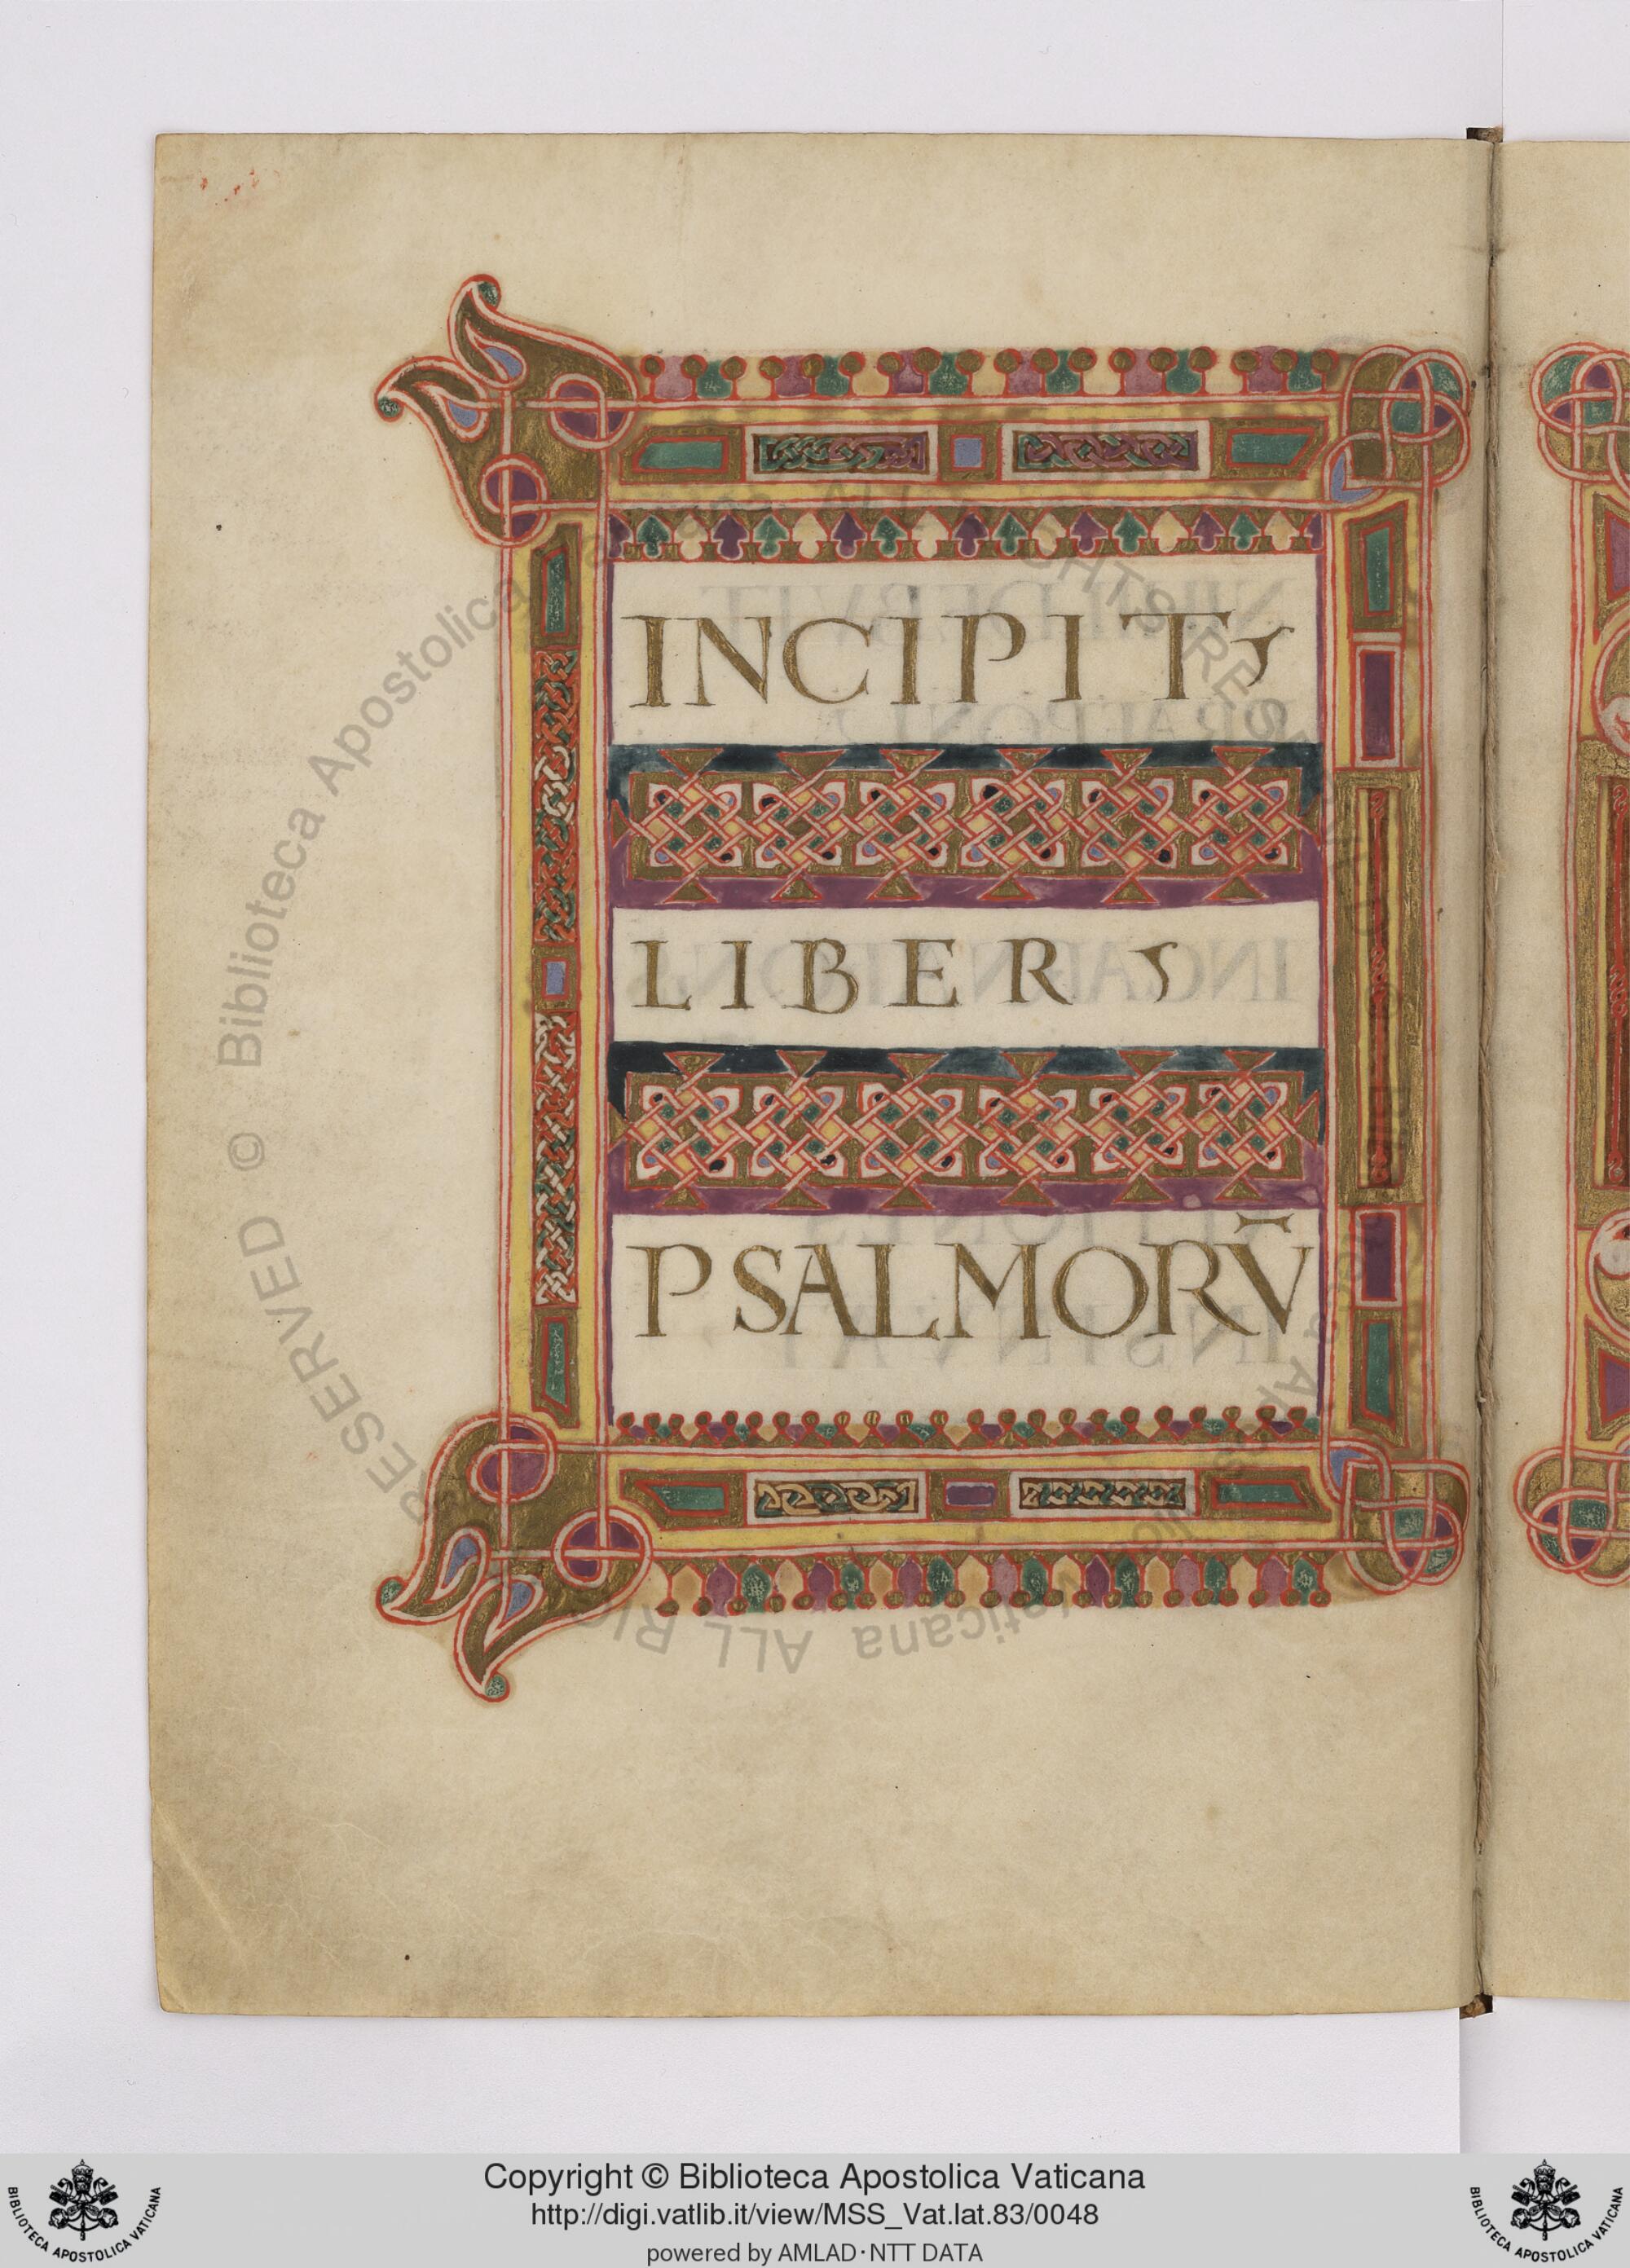 INCIPIT
LIBER
PSALMORV̄
Biblioteca Apostolica Vaticana ALL RIGHTS RESERVED ©
Copyright © Biblioteca Apostolica Vaticana
http://digi.vatlib.it/view/MSS_Vat.lat.83/0048
powered by AMLAD·NTT DATA
BIBLIOTECA APOSTOLICA VATICANA
BIBLIOTECA APOSTOLICA VATICANA